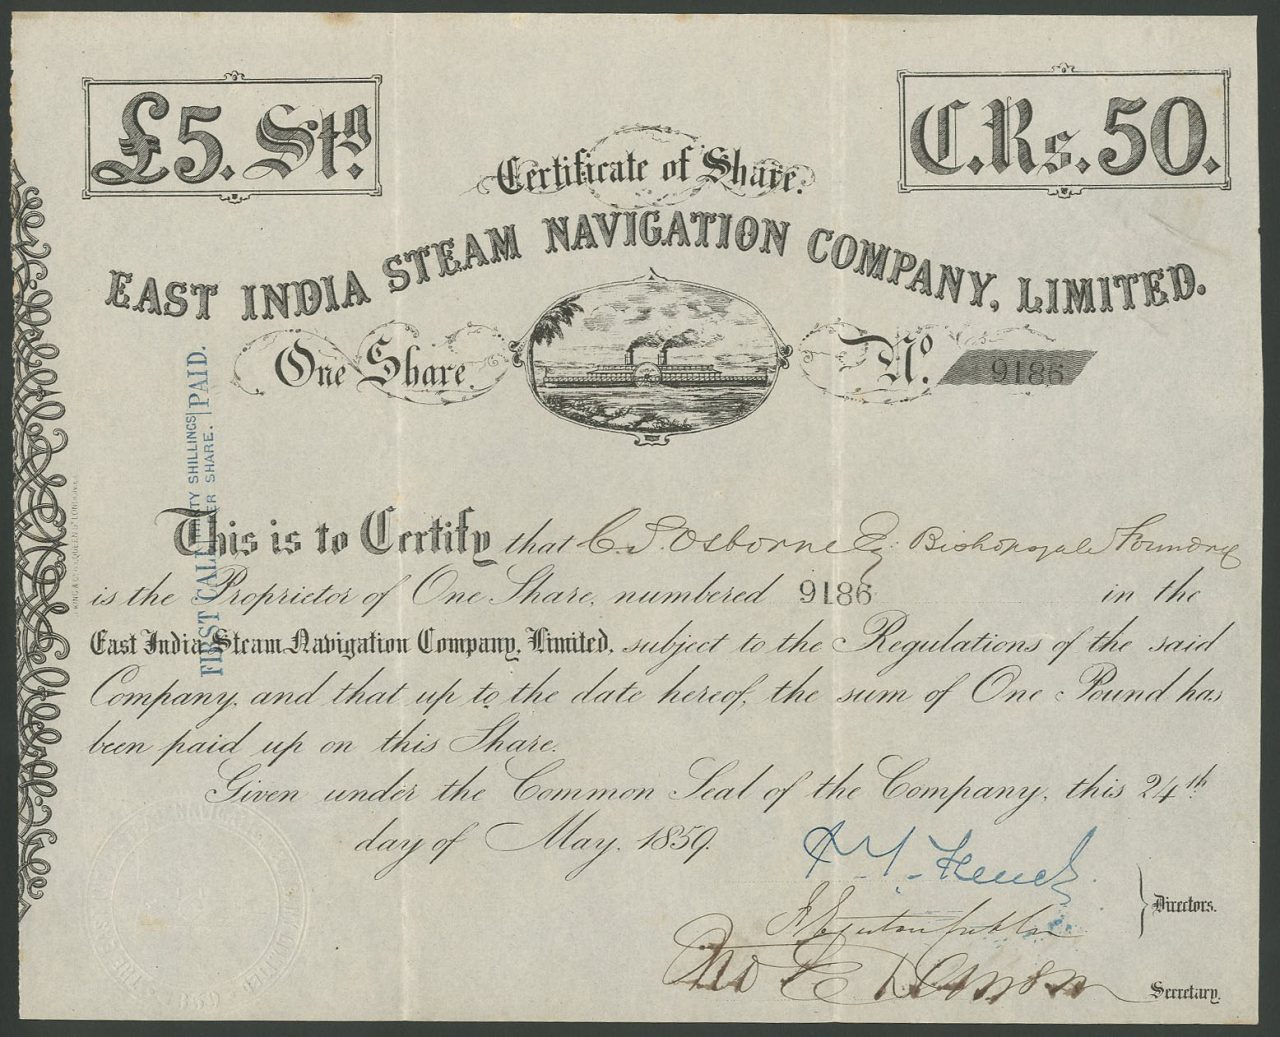 £5. Stg.
C.Rs. 50.
Certificate of Share.
EAST INDIA STEAM NAVIGATION COMPANY, LIMITED.
One Share.
No. 9186
FIRST CALL SHILLINGS PER SHARE. PAID.
This is to Certify that C. S. Osborne Esq. Foundry
is the Proprietor of One Share, numbered 9186 in the
East India Steam Navigation Company, Limited, subject to the Regulations of the said
Company, and that up to the date hereof, the sum of One Pound has
been paid up on this Share.
Given under the Common Seal of the Company, this 24th
day of May, 1859.
Directors.
Secretary.